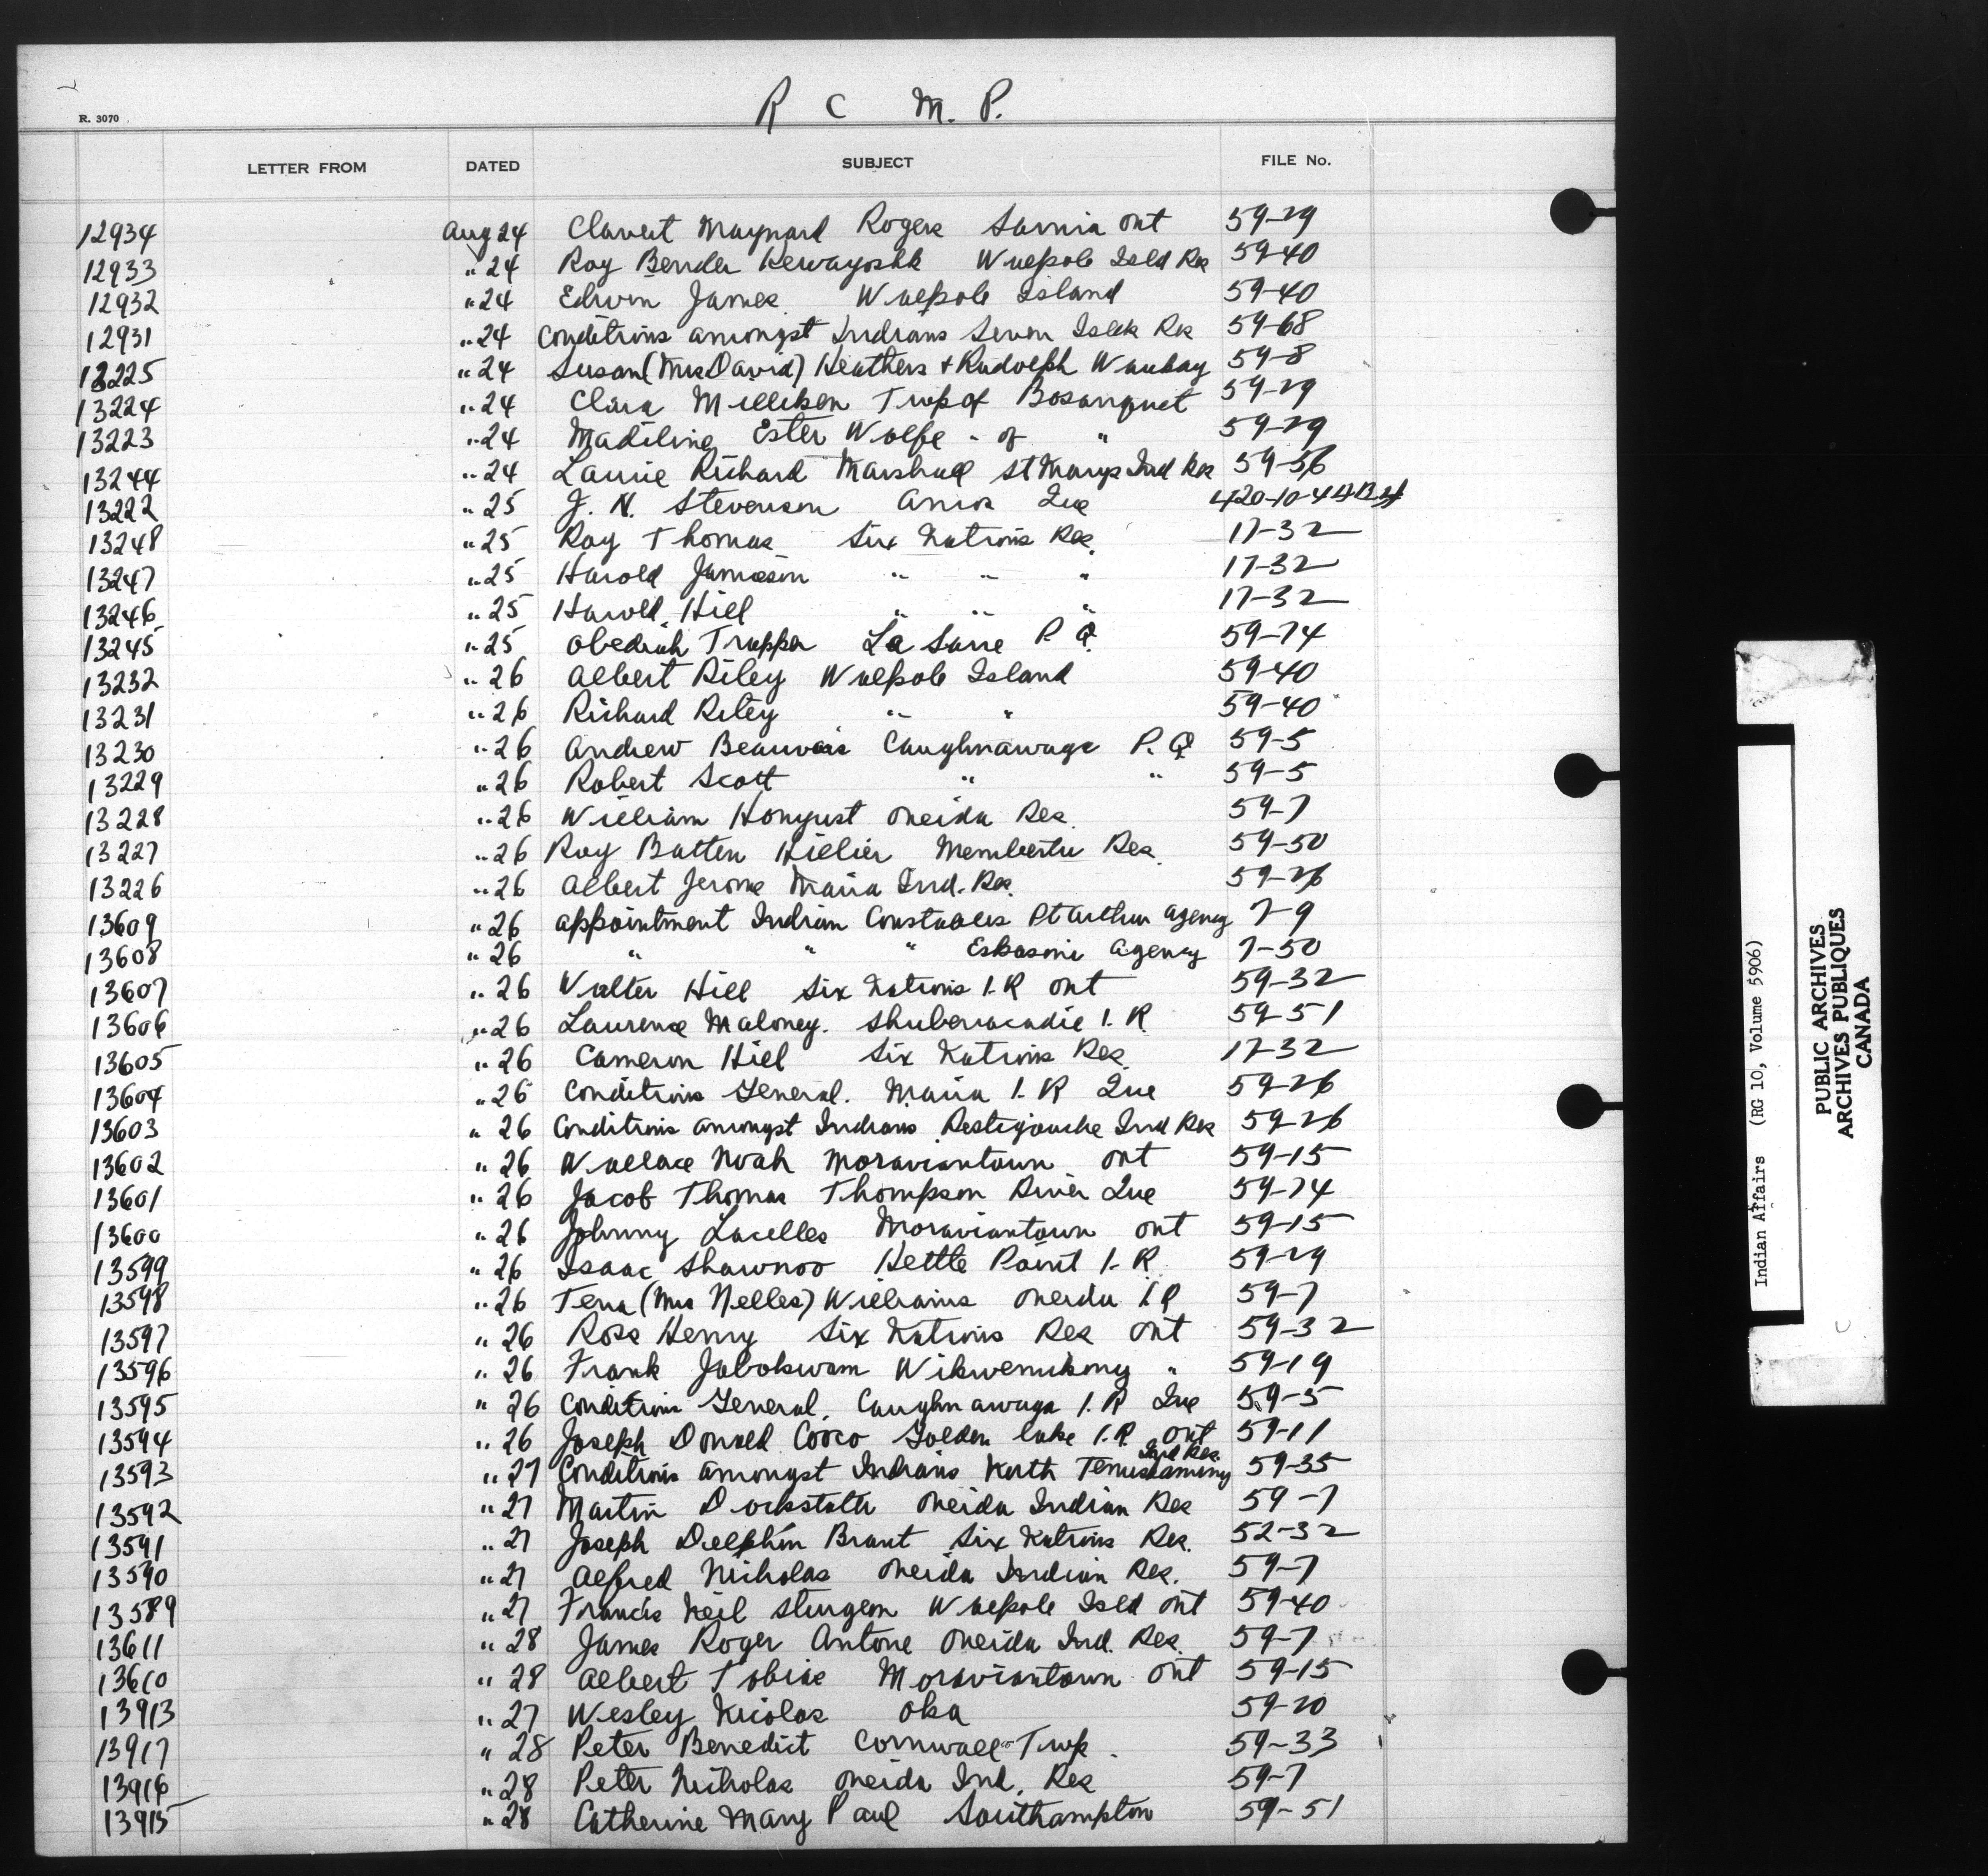 R C M. P.
R. 3070
LETTER FROM DATED SUBJECT FILE No.
12934 Aug 24 Clavert Maynard Rogers Sarnia Ont 59-29
12933 " 24 Roy Bender Kewayoshk Walpole Isld Res 59-40
12932 " 24 Edwin James Walpole Island 59-40
12931 " 24 Conditions amongst Indians Seven Islds Res 59-68
13225 " 24 Susan (Mrs David) Heathers + Rudolph Waubay 59-8
13224 " 24 Clara Milliken Twp of Bosanquet 59-29
13223 " 24 Madiline Ester Wolfe " of " 59-29
13244 " 24 Laurie Richard Marshall St Marys Ind Res 59-56
13222 " 25 J. N. Stevenson Amos Que
13248 " 25 Roy Thomas Six Nations Res. 17-32
13247 " 25 Harold Jamieson " " " 17-32
13246 " 25 Harold Hill " " " 17-32
13245 " 25 Obediah Trapper La Sarre P. Q. 59-74
13232 " 26 Albert Riley Walpole Island 59-40
13231 " 26 Richard Riley " " 59-40
13230 " 26 Andrew Beauvais Caughnawaga P. Q 59-5
13229 " 26 Robert Scott " " 59-5
13228 " 26 William Honyust Oneida Res. 59-7
13227 " 26 Roy Batten Hillier Membertu Res. 59-50
13226 " 26 Albert Jerome Maria Ind. Res. 59-26
13609 " 26 Appointment Indian Constables Pt Arthur Agency 7-9
13608 " 26 " " " Eskasoni Agency 7-50
13607 " 26 Walter Hill Six Nations I. R Ont 59-32
13606 " 26 Laurence Maloney. Shubenacadie I. R. 59-51
13605 " 26 Cameron Hill Six Nations Res. 17-32
13604 " 26 Conditions General. Maria I. R Que 59-26
13603 " 26 Conditions amongst Indians Restigouche Ind Res 59-26
13602 " 26 Wallace Noah Moraviantown Ont 59-15
13601 " 26 Jacob Thomas Thompson River Que 59-74
13600 " 26 Johnny Lacelles Moraviantown Ont 59-15
13599 " 26 Isaac Shawnoo Kettle Point I. R. 59-29
13598 " 26 Tena (Mrs Nelles) Williams Oneida I. R 59-7
13597 " 26 Ross Henry Six Nations Res Ont 59-32
13596 " 26 Frank Jabokwam Wikwemikong " 59-19
13595 " 26 Conditions General. Caughnawaga I. R Que 59-5
13594 " 26 Joseph Donald Cooco Golden Lake I. R. Ont 59-11
13593 " 27 Conditions amongst Indians North Temiskaming Ind Res. 59-35
13592 " 27 Martin Dockstater Oneida Indian Res 59-7
13591 " 27 Joseph Delphin Brant Six Nations Res. 52-32
13590 " 27 Alfred Nicholas Oneida Indian Res. 59-7
13589 " 27 Francis Neil Sturgeon Walpole Isld Ont 59-40
13611 " 28 James Roger Antone Oneida Ind. Res. 59-7
13610 " 28 Albert Tobias Moraviantown Ont 59-15
13913 " 27 Wesley Nicolas Oka 59-20
13917 " 28 Peter Benedict Cornwall Twp. 59-33
13916 " 28 Peter Nicholas Oneida Ind. Res 59-7
13915 " 28 Catherine Mary Paul Southampton 59-51
Indian Affairs (RG 10, Volume 5906)
PUBLIC ARCHIVES
ARCHIVES PUBLIQUES
CANADA